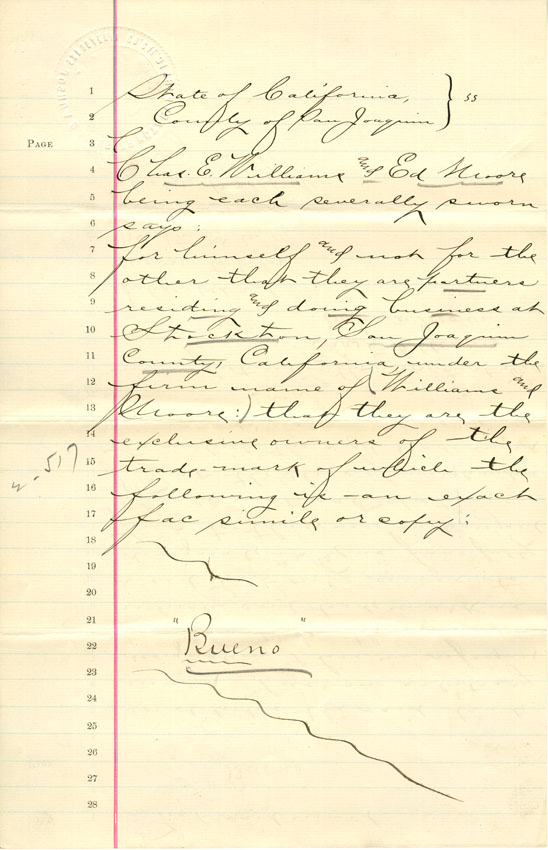 State of California,
County of San Joaquin } ss
PAGE
Chas. E. Williams and Ed Moore
being each severally sworn
says:
for himself and not for the
other that they are partners
residing and doing business at
Stockton, San Joaquin
County, California, under the
firm name of (Williams and
Moore:) that they are the
exclusive owners of the
trade-mark of which the
following is an exact
fac simile or copy:
"Bueno"
1
2
3
4
5
6
7
8
9
10
11
12
13
14
15
16
17
18
19
20
21
22
23
24
25
26
27
28